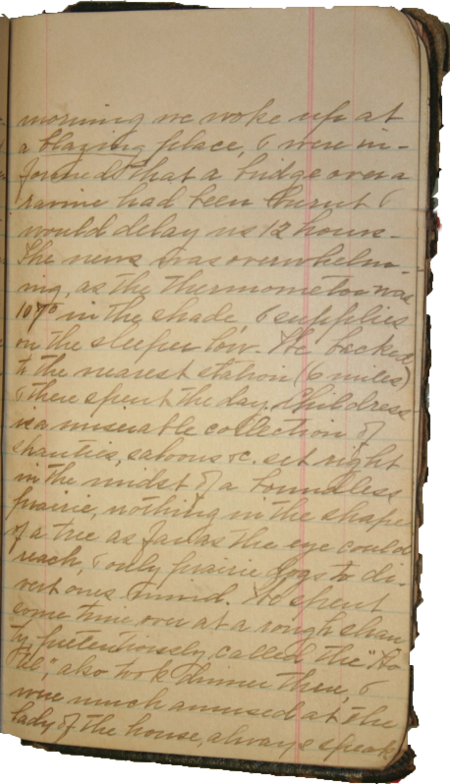 morning we woke up at
a blazing place, & were in-
formed that a bridge over a
ravine had been burnt &
would delay us 12 hours.
The news was overwhelm-
ing, as the thermometer was
107° in the shade, & supplies
on the sleeper low. We backed
to the nearest station (6 miles)
& there spent the day. Childress
is a miserable collection of
shanties, saloons &c. set right
in the midst of a boundless
prairie, nothing in the shape
of a tree as far as the eye could
reach, & only prairie dogs to di-
vert ones mind. We spent
some time over at a rough shan
ty, pretentiously called the "Ho
tel", also took dinner there, &
were much amused at the
lady of the house, always speak